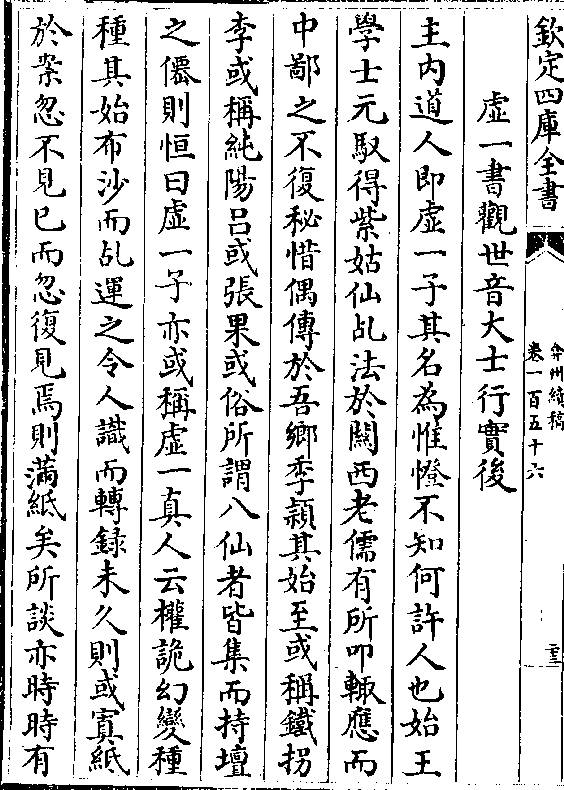 欽定四庫全書
弇州續稿
卷一百五十六
二十三
虛一書觀世音大士行實後
主内道人即虛一子其名為惟燈不知何許人也始王
學士元馭得紫姑仙乩法於關西老儒有所叩輒應而
中鄙之不復秘惜偶傳於吾鄉季頴其始至或稱鐵拐
李或稱純陽吕或張果或俗所謂八仙者皆集而持壇
之僊則恒曰虛一子亦或稱虛一真人云權詭幻變種
種其始布沙而乩運之令人識而轉録未久則或寘紙
於案忽不見已而忽復見焉則滿紙矣所談亦時時有